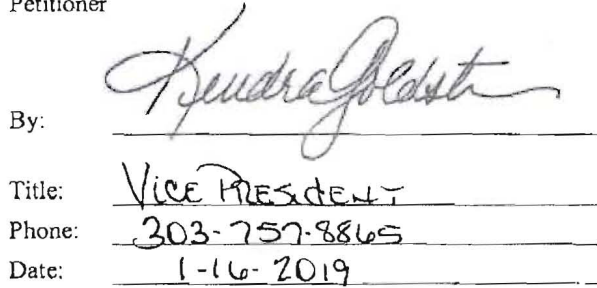 Petitioner
By: Kendra Goldstein
Title: VICE PRESIDENT
Phone: 303-757-8865
Date: 1-16-2019